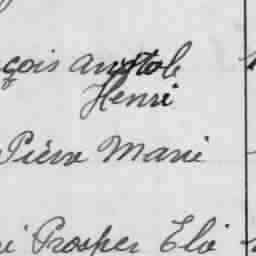 çois Anatole
Henri
Pierre Marie
i Prosper Elie